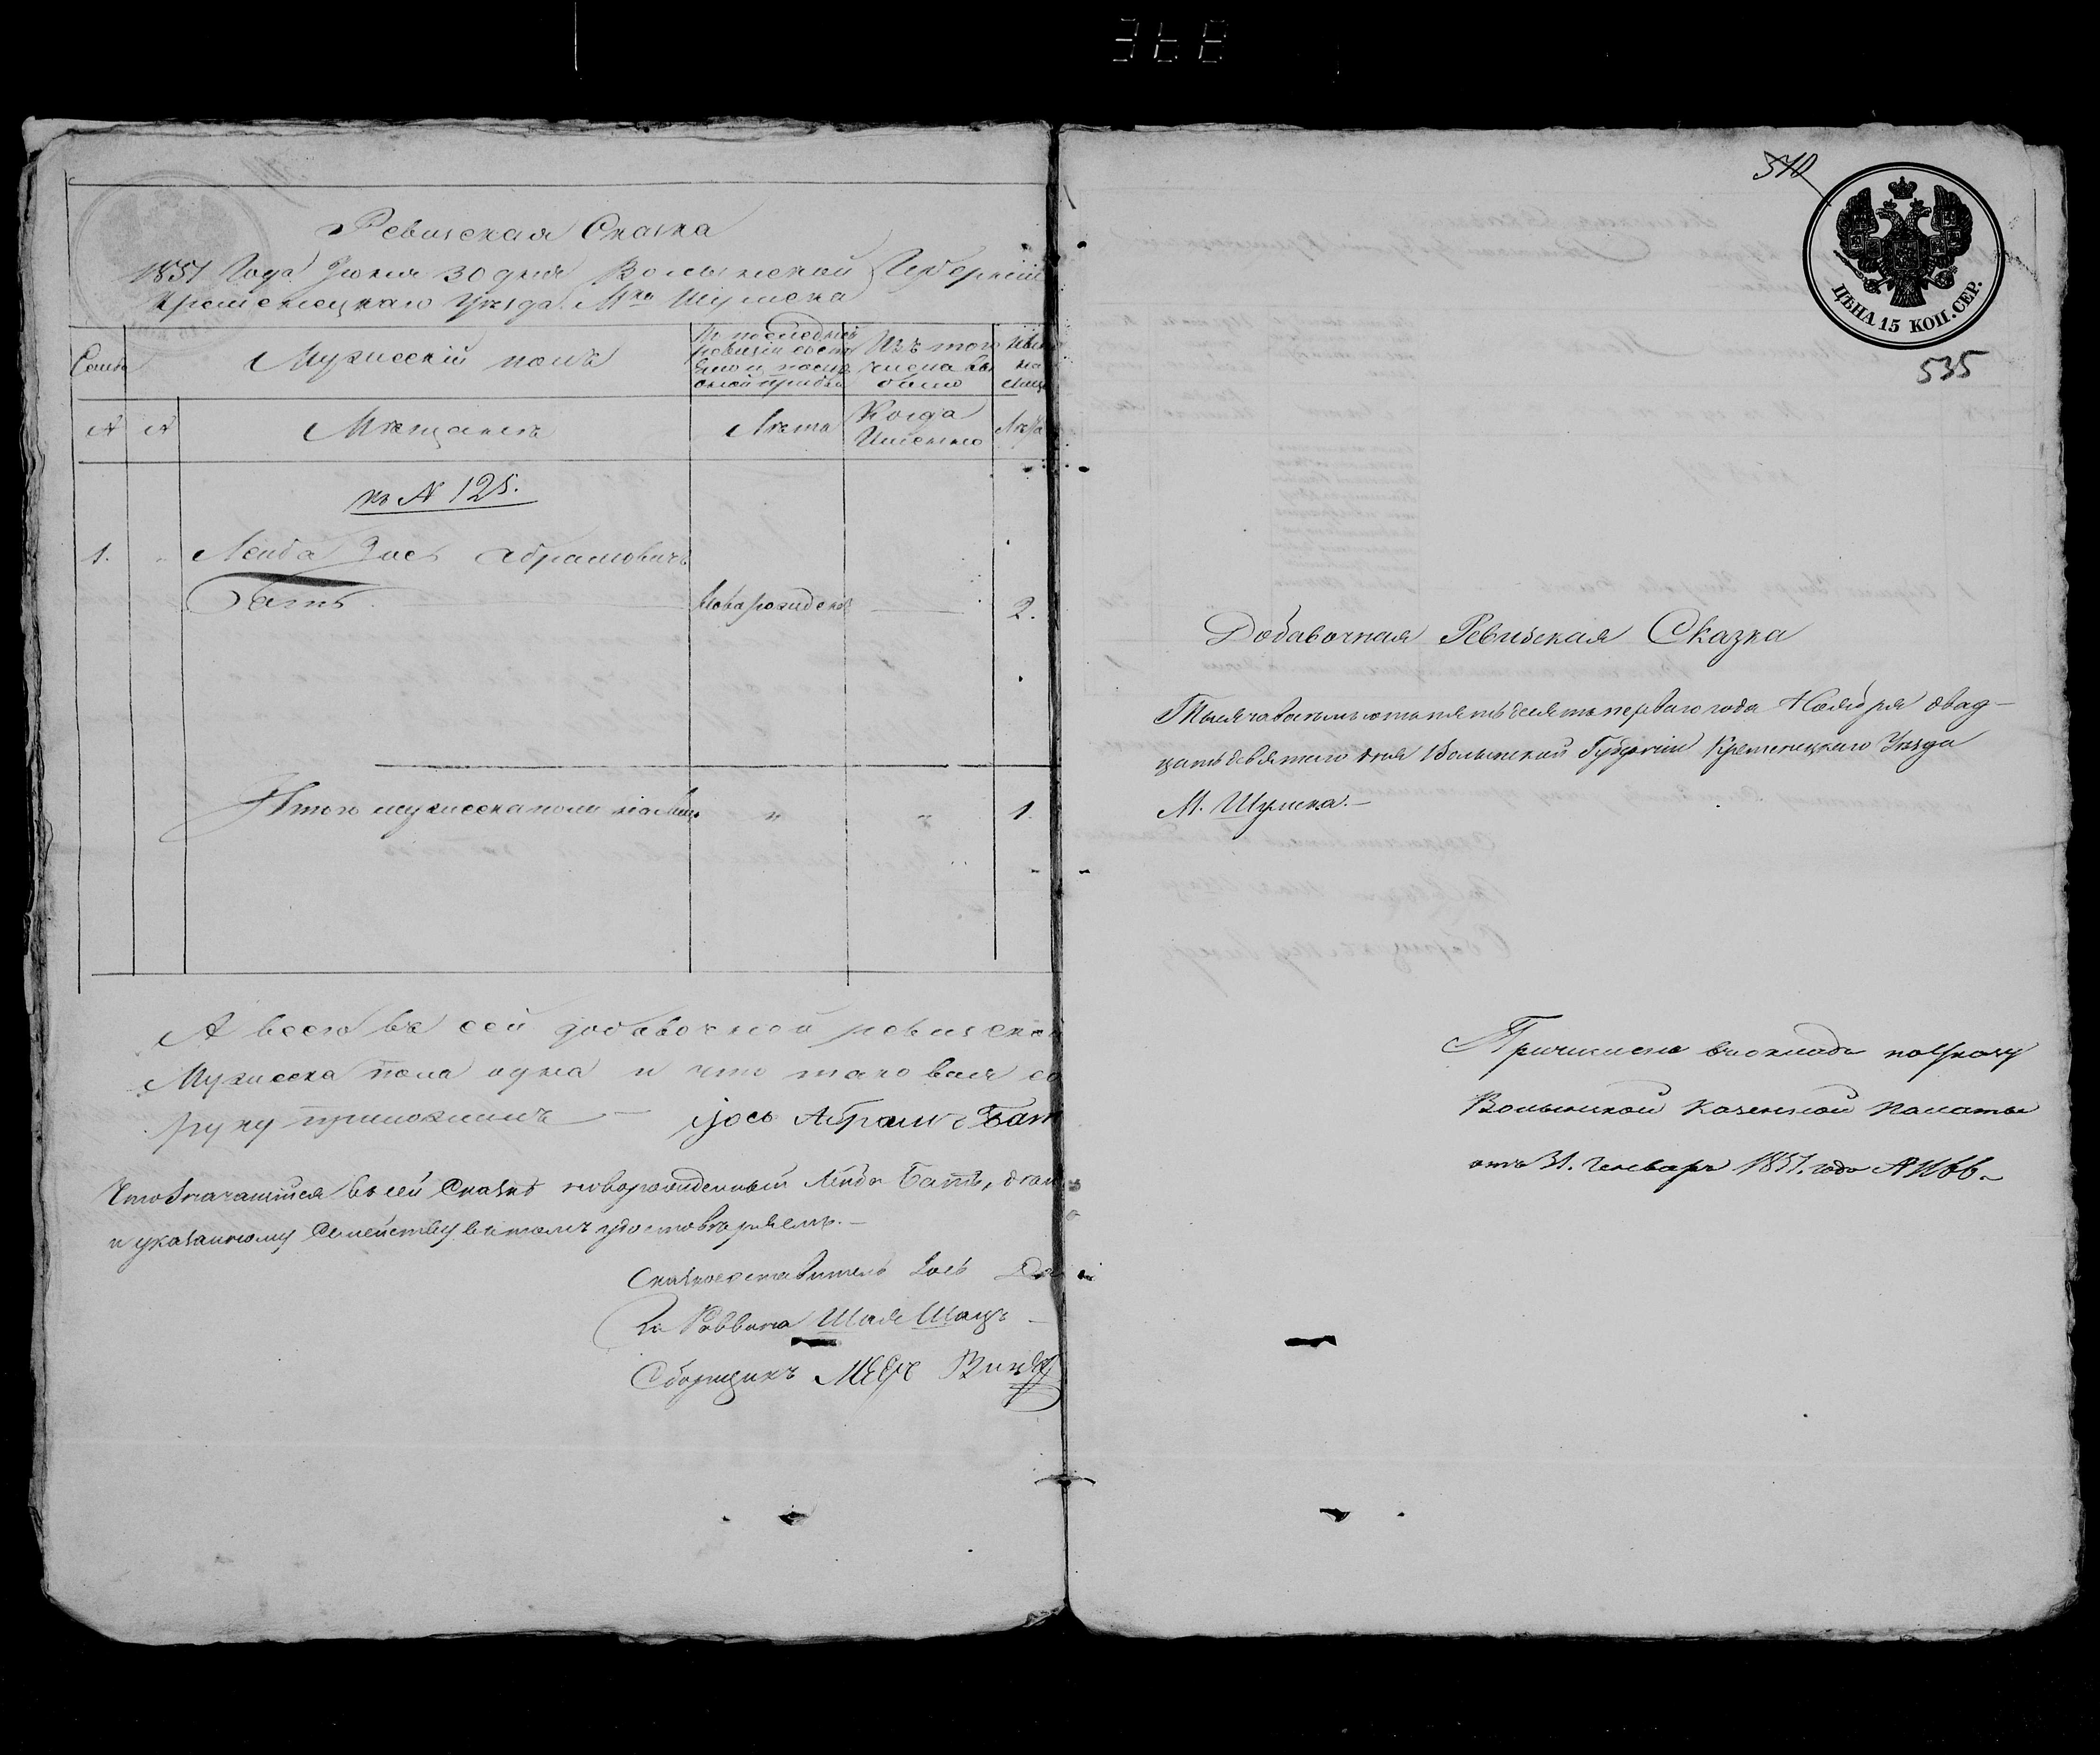 Ревизская Сказка
1851 Года Июня 30 дня Волынской Губерніи
Кременецкаго Уезда М^ка Шумска
Семьи
Мужескій полъ
По последней ревизіи состояло и после оной прибыло
Изъ того числа выбыло
Ныне на лицо
№ №
Мещанъ
Лета
Когда Именно
Лета
къ № 125.
1. Лейба Іось Абрамовичъ
Батъ новорожденъ 2.
Итого мужеска пола на лицо " " 1
А всего въ сей добавочной ревизской
Мужеска пола одна и что таковая
руку приложилъ — Іось Абрам Бат
Что значащійся въ сей Сказке новорожденный Лейба Батъ,
и указанному Семейству въ томъ удостоверяемъ.—
Сказкосоставитель Іось
За Раввина Шая Шацъ —
Сборщикъ Меер
510
ЦѢНА 15 КОП. СЕР.
535
Добавочная Ревизская Сказка
Тысяча восемьсотъ пятьдесятъ перваго года Ноября двад-
цать девятаго дня Волынской Губерніи Кременецкаго Уезда
М. Шумска.—
Причислена въ окладъ по Указу
Волынской Казенной Палаты
отъ 31. Генваря 1851. года № 1166.